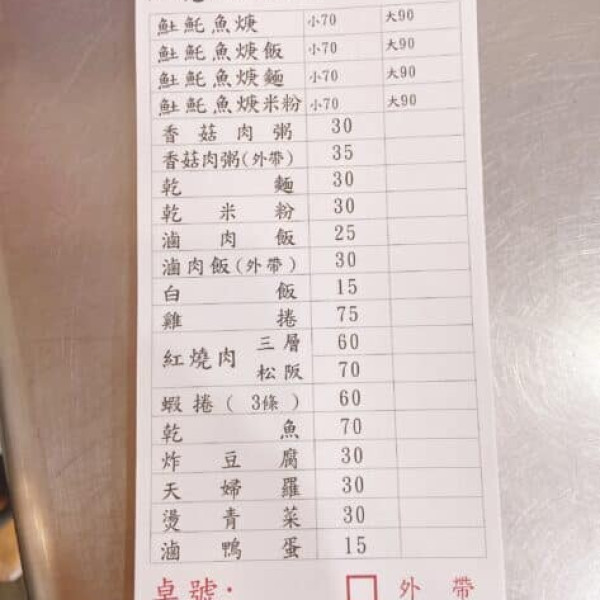 𩵚魠魚焿 小70 大90
𩵚魠魚焿飯 小70 大90
𩵚魠魚焿麵 小70 大90
𩵚魠魚焿米粉 小70 大90
香菇肉粥 30
香菇肉粥(外帶) 35
乾麵 30
乾米粉 30
滷肉飯 25
滷肉飯(外帶) 30
白飯 15
雞捲 75
紅燒肉 三層 60
松阪 70
蝦捲( 3條 ) 60
乾魚 70
炸豆腐 30
天婦羅 30
燙青菜 30
滷鴨蛋 15
桌號: 外帶